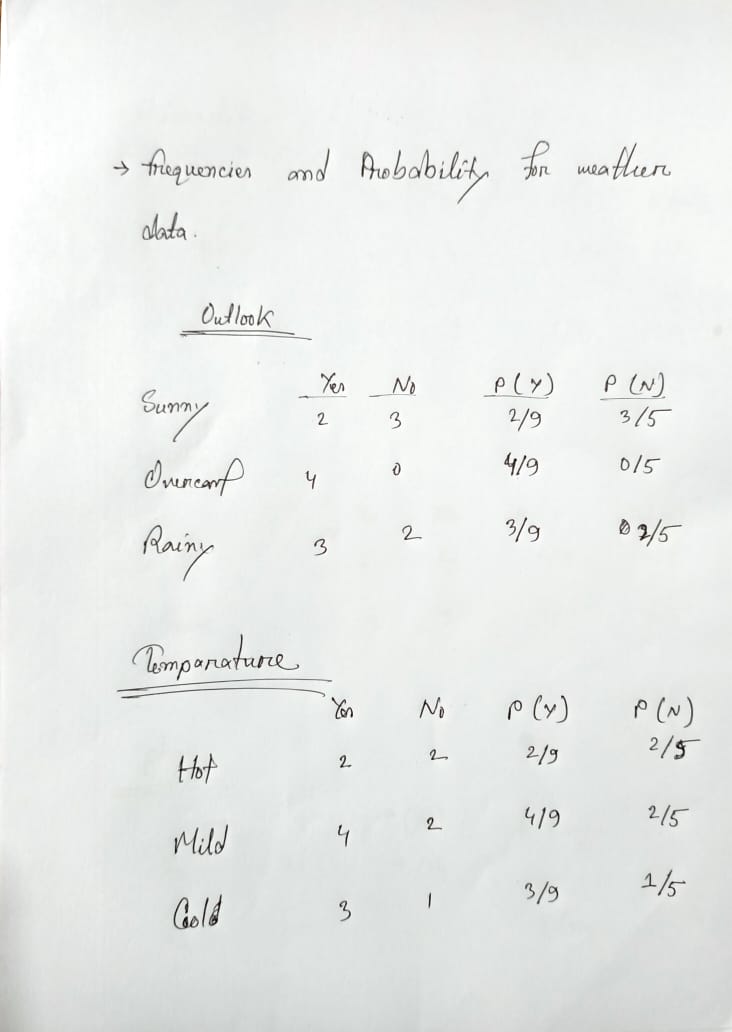 → frequencies and Probability for weather
data.
Outlook
Yes No P(Y) P(N)
Sunny 2 3 2/9 3/5
Overcast 4 0 4/9 0/5
Rainy 3 2 3/9 2/5
Temparature
Yes No P(Y) P(N)
Hot 2 2 2/9 2/5
Mild 4 2 4/9 2/5
Cold 3 1 3/9 1/5